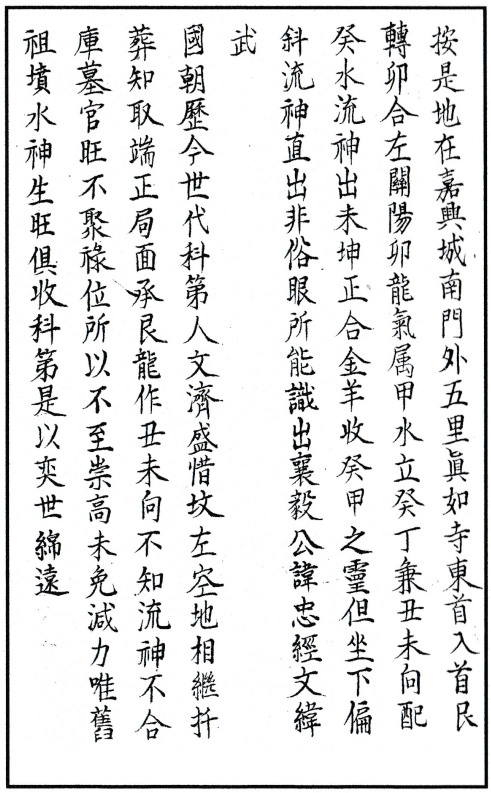 按是地在嘉興城南門外五里眞如寺東首入首艮
轉卯合左關陽卯龍氣属甲水立癸丁兼丑未向配
癸水流神出未坤正合金羊收癸甲之靈但坐下偏
斜流神直出非俗眼所能識出襄毅公諱忠經文緯
武
國朝歷今世代科第人文濟盛惜坟左空地相繼扦
葬知取端正局面承艮龍作丑未向不知流神不合
庫墓官旺不聚祿位所以不至崇高未免減力唯舊
祖墳水神生旺俱收科第是以奕世綿遠